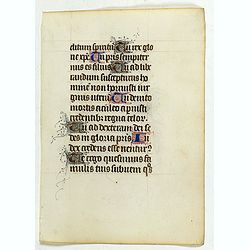 clitum spiritū Tu rex glo
rie xp̄e Tu pris sempiter
nus es filius Tu ad libe
randum suscepturus ho
minē non horruisti vir
ginis uterū Tu deuicto
mortis aculeo apruisti
credentibꝰ regna celoꝝ
Tu ad dexteram dei se
des in gloria pris Iu
dex crederis esse uenturꝰ
Te ergo quesumus fa
mulis tuis subueni qͦs